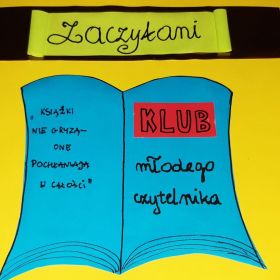 Zaczytani
„KSIĄŻKI
NIE GRYZĄ-
ONE
POCHŁANIAJĄ
W CAŁOŚCI"
KLUB
młodego
czytelnika